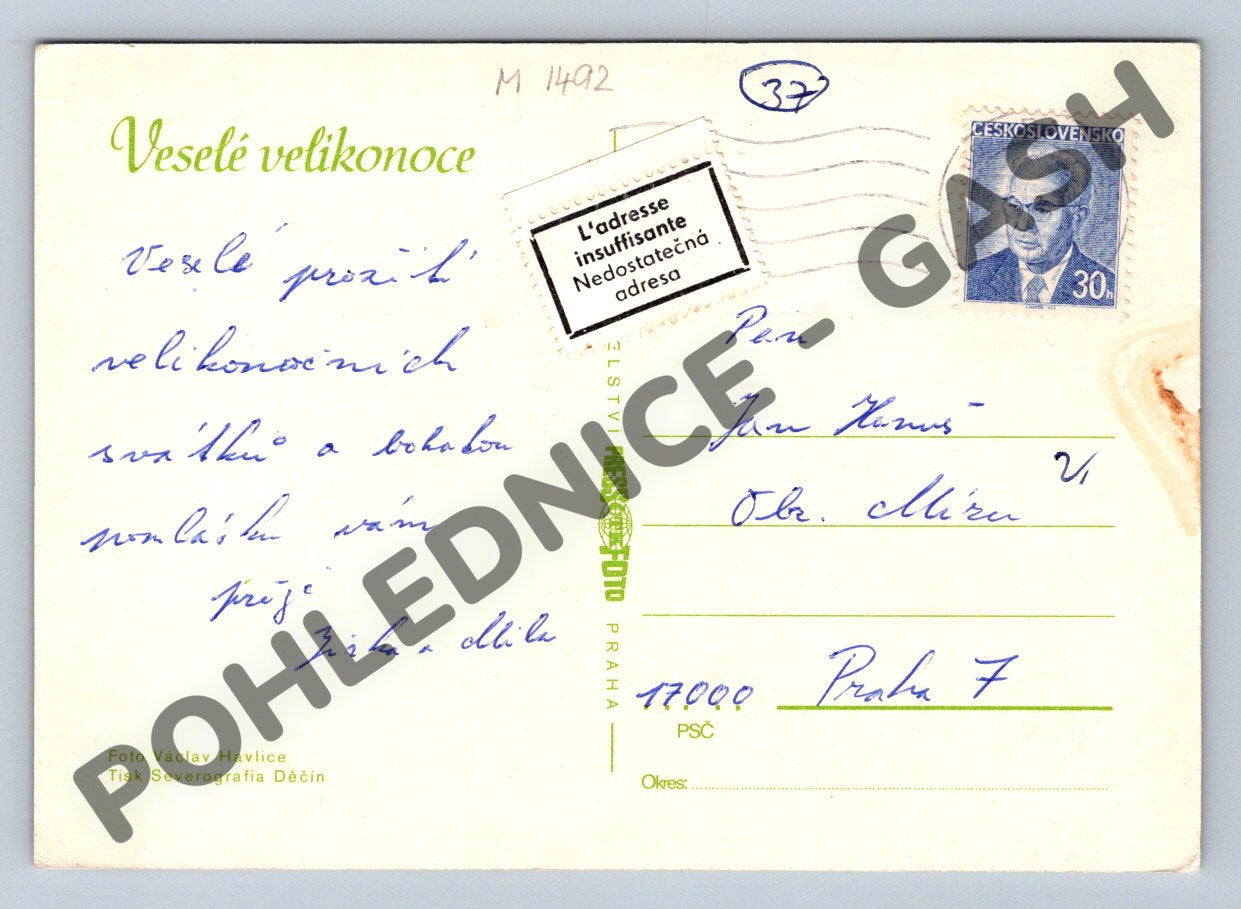 M 1492
37
Veselé velikonoce
ČESKOSLOVENSKO
30h
L'adresse
insuffisante
Nedostatečná
adresa
Veselé prožití
velikonočních
svátků a bohatou
pomlásku vám
přeje
Jirka a Mila
Pan
Jan Hanuš
Obr. Míru
17000 Praha 7
PSČ
Okres:
ELSTVÍ PRESSFOTO PRAHA
Foto Václav Havlice
Tisk Severografia Děčín
POHLEDNICE - GASH